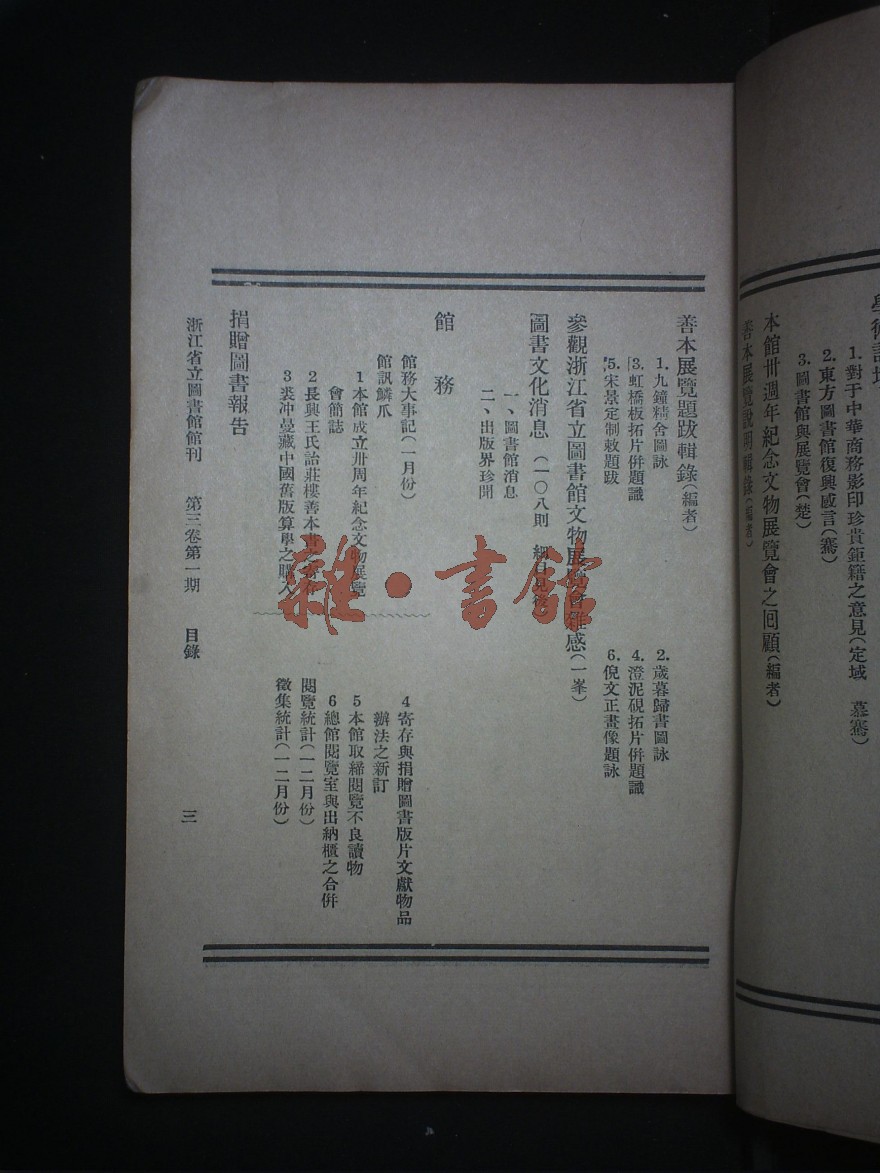 1. 對于中華商務影印珍貴鉅籍之意見(定域 慕騫)
2. 東方圖書館復興感言(騫)
3. 圖書館與展覽會(楚)
本館卅週年紀念文物展覽會之回顧(編者)
善本展覽說明輯錄(編者)
善本展覽題跋輯錄(編者)
1. 九鐘精舍圖詠
2. 歲暮歸書圖詠
3. 虹橋板拓片併題識
4. 澄泥硯拓片併題識
5. 宋景定制敕題跋
6. 倪文正畫像題詠
參觀浙江省立圖書館文物展覽會雜感(一峯)
圖書文化消息(一〇八則 細目見後)
一、圖書館消息
二、出版界珍聞
館務
館務大事記(一月份)
館訊鱗爪
1 本館成立卅周年紀念文物展覽
會簡誌
2 長興王氏詒莊樓善本書之寄存
3 裘冲曼藏中國舊版算學之購入
4 寄存與捐贈圖書版片文獻物品
辦法之新訂
5 本館取締閱覽不良讀物
6 總館閱覽室與出納櫃之合併
閱覽統計(一二月份)
徵集統計(一二月份)
捐贈圖書報告
浙江省立圖書館館刊 第三卷第一期 目錄
三
雜·書館